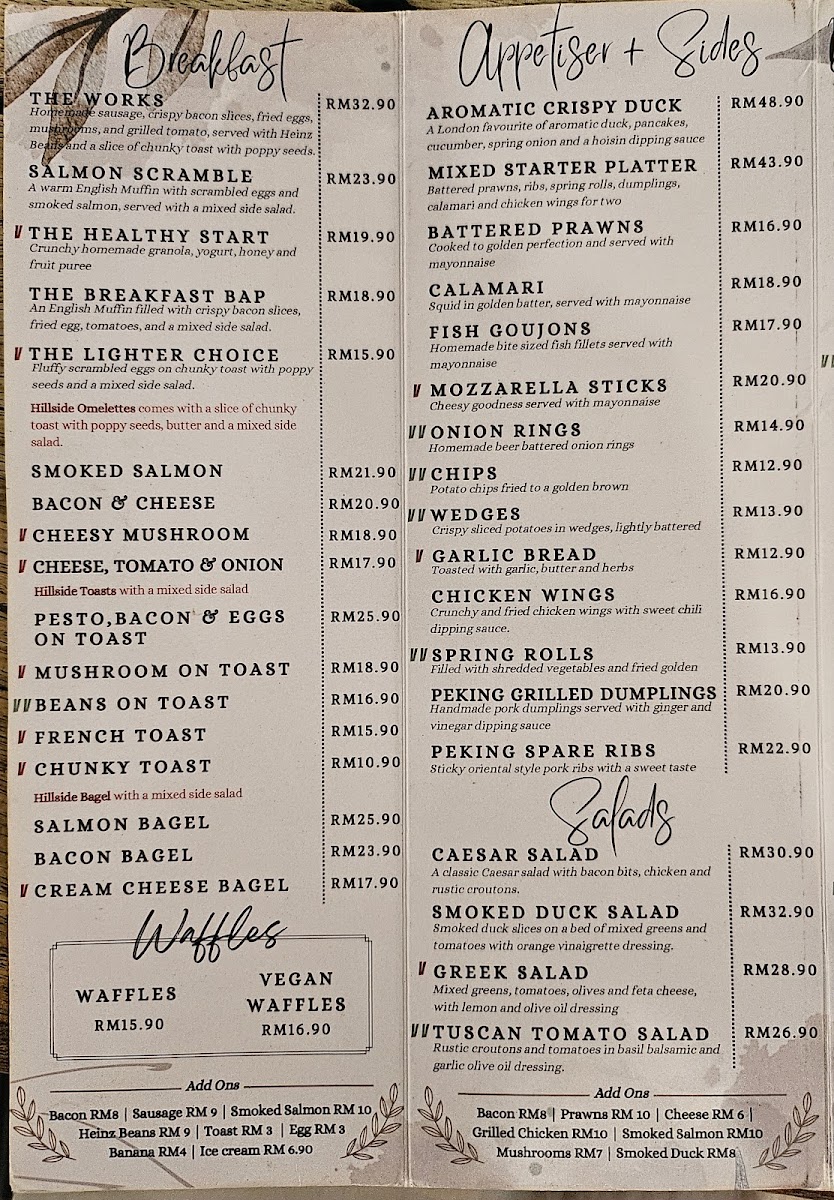 Breakfast
THE WORKS RM32.90
Homemade sausage, crispy bacon slices, fried eggs,
mushrooms, and grilled tomato, served with Heinz
Beans and a slice of chunky toast with poppy seeds.
SALMON SCRAMBLE RM23.90
A warm English Muffin with scrambled eggs and
smoked salmon, served with a mixed side salad.
V THE HEALTHY START RM19.90
Crunchy homemade granola, yogurt, honey and
fruit puree
THE BREAKFAST BAP RM18.90
An English Muffin filled with crispy bacon slices,
fried egg, tomatoes, and a mixed side salad.
V THE LIGHTER CHOICE RM15.90
Fluffy scrambled eggs on chunky toast with poppy
seeds and a mixed side salad.
Hillside Omelettes comes with a slice of chunky
toast with poppy seeds, butter and a mixed side
salad.
SMOKED SALMON RM21.90
BACON & CHEESE RM20.90
V CHEESY MUSHROOM RM18.90
V CHEESE, TOMATO & ONION RM17.90
Hillside Toasts with a mixed side salad
PESTO,BACON & EGGS RM25.90
ON TOAST
V MUSHROOM ON TOAST RM18.90
VV BEANS ON TOAST RM16.90
V FRENCH TOAST RM15.90
V CHUNKY TOAST RM10.90
Hillside Bagel with a mixed side salad
SALMON BAGEL RM25.90
BACON BAGEL RM23.90
V CREAM CHEESE BAGEL RM17.90
Waffles
WAFFLES
RM15.90
VEGAN
WAFFLES
RM16.90
Add Ons
Bacon RM8 | Sausage RM 9 | Smoked Salmon RM 10
Heinz Beans RM 9 | Toast RM 3 | Egg RM 3
Banana RM4 | Ice cream RM 6.90
Appetiser + Sides
AROMATIC CRISPY DUCK RM48.90
A London favourite of aromatic duck, pancakes,
cucumber, spring onion and a hoisin dipping sauce
MIXED STARTER PLATTER RM43.90
Battered prawns, ribs, spring rolls, dumplings,
calamari and chicken wings for two
BATTERED PRAWNS RM16.90
Cooked to golden perfection and served with
mayonnaise
CALAMARI RM18.90
Squid in golden batter, served with mayonnaise
FISH GOUJONS RM17.90
Homemade bite sized fish fillets served with
mayonnaise
V MOZZARELLA STICKS RM20.90
Cheesy goodness served with mayonnaise
VV ONION RINGS RM14.90
Homemade beer battered onion rings
VV CHIPS RM12.90
Potato chips fried to a golden brown
VV WEDGES RM13.90
Crispy sliced potatoes in wedges, lightly battered
V GARLIC BREAD RM12.90
Toasted with garlic, butter and herbs
CHICKEN WINGS RM16.90
Crunchy and fried chicken wings with sweet chili
dipping sauce.
VV SPRING ROLLS RM13.90
Filled with shredded vegetables and fried golden
PEKING GRILLED DUMPLINGS RM20.90
Handmade pork dumplings served with ginger and
vinegar dipping sauce
PEKING SPARE RIBS RM22.90
Sticky oriental style pork ribs with a sweet taste
Salads
CAESAR SALAD RM30.90
A classic Caesar salad with bacon bits, chicken and
rustic croutons.
SMOKED DUCK SALAD RM32.90
Smoked duck slices on a bed of mixed greens and
tomatoes with orange vinaigrette dressing.
V GREEK SALAD RM28.90
Mixed greens, tomatoes, olives and feta cheese,
with lemon and olive oil dressing
VV TUSCAN TOMATO SALAD RM26.90
Rustic croutons and tomatoes in basil balsamic and
garlic olive oil dressing.
Add Ons
Bacon RM8 | Prawns RM 10 | Cheese RM 6 |
Grilled Chicken RM10 | Smoked Salmon RM10
Mushrooms RM7 | Smoked Duck RM8